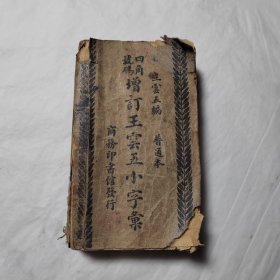 王雲五編 普通本
四角號碼
增訂王雲五小字彙
商務印書館發行